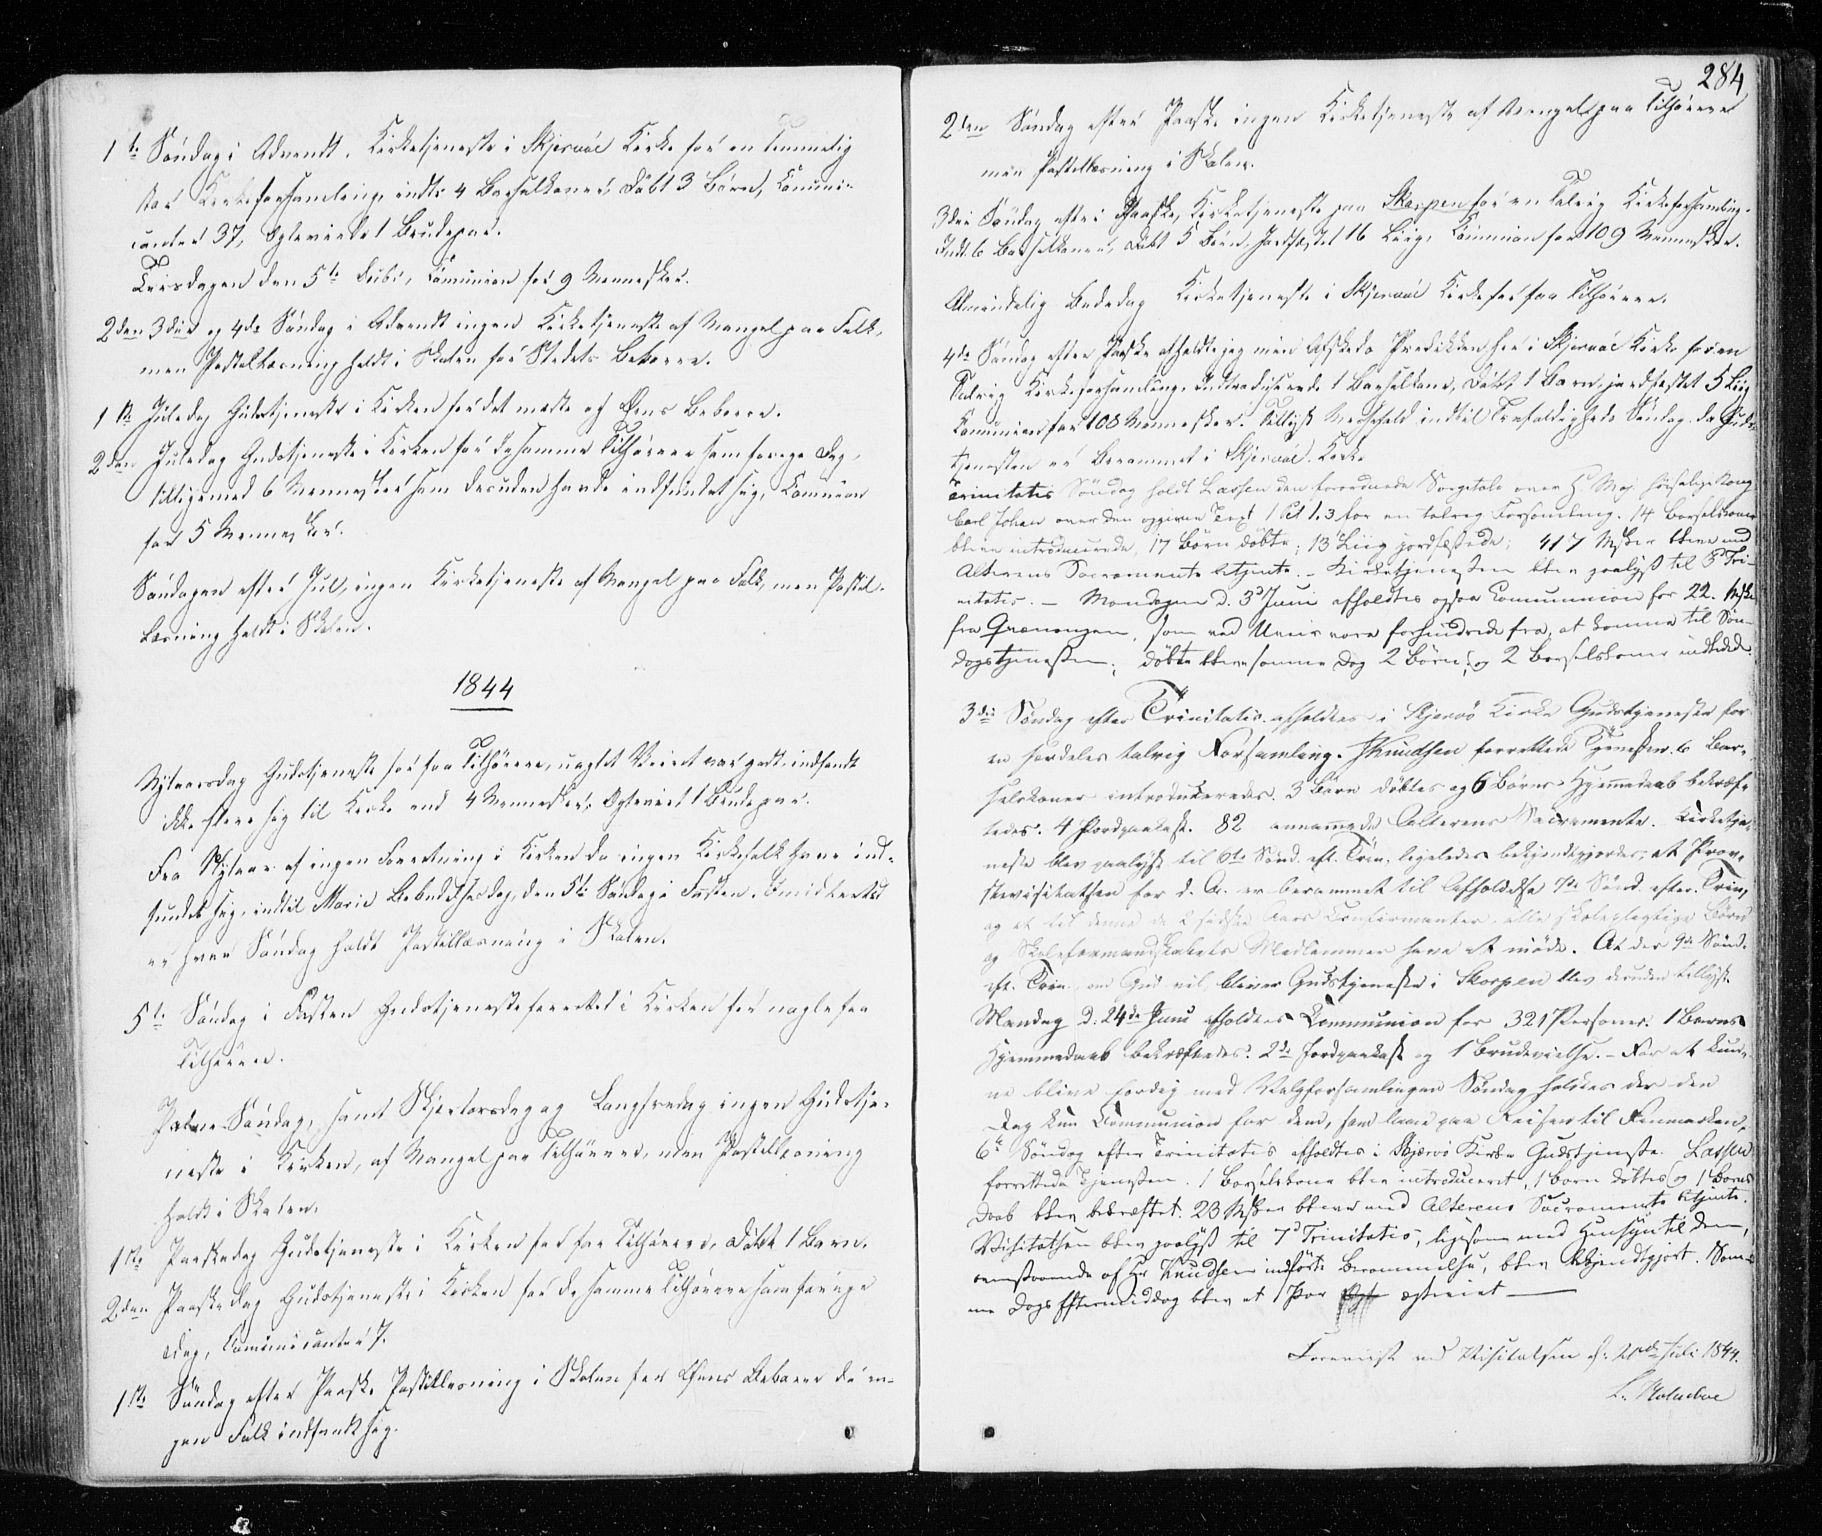 1te Søndag i Advendt. Kirketjeneste i Skjervøe Kirke for en temmelig
stor Kirkeforsamling, indtr: 4 Barselkoner, døbt 3 Børn, Comuni-
canter 37, Egteviede 1 Brudepar.
Tirsdagen den 5te Decbr, Comunion for 9 Mennesker.
2den 3die og 4de Søndag i Advendt ingen Kirketjeneste af Mangel paa Folk,
men Postillæsning holdt i Skolen for Stedets Beboere.
1ste Juledag Gudstjeneste i Kirken for det meste af Øens Beboere.
2den Juledag Gudstjeneste i Kirken for de samme Tilhørere som forrige Dag,
tilligemed 6 Mennesker som desuden havde indfundet sig, Comunion
for 5 Mennesker.
Søndagen efter Jul, ingen Kirketjeneste af Mangel paa Folk, men Postil-
læsning holdt i Skolen.
1844
Nytaarsdag Gudstjeneste for faa Tilhørere, uagtet Veiret var godt, indfandt
ikke flere sig til Kirke end 4 Mennesker, Egteviet 1 Brudepar.
Fra Nytaar af ingen Forretning i Kirken da ingen Kirkefolk have ind-
fundet sig, indtil Mariæ Bebudelsesdag, den 5te Søndag i Fasten. Imidlertid
er hver Søndag holdt Postillæsning i Skolen.
5te Søndag i Fasten Gudstjeneste forrettet i Kirken for nogle faa
Tilhørere.
Palme Søndag, samt Skjertorsdag og Langfredag ingen Gudstje-
neste i Kirken, af Mangel paa Tilhørere, men Postillæsning
holdt i Skolen.
1ste Paaskedag Gudstjeneste i Kirken for faa Tilhørere, Døbt 1 Barn.
2den Paaskedag Gudstjeneste i Kirken for de samme Tilhørere som forrige
Dag, Comunicanter 7.
1ste Søndag efter Paaske Postillæsning i Skolen for Øens Beboere da in-
gen Folk indfandt sig.
284
2den Søndag efter Paaske ingen Kirketjeneste af Mangel paa Tilhørere
men Postillæsning i Skolen.
3die Søndag efter Paaske, Kirketjeneste paa Skorpen for en talrig Kirkeforsamling.
Indt. 6 Barselkoner, døbt 5 Børn, Jordfæstet 16 Liig, Comunion for 109 Mennesker.
Almindelig Bededag Kirketjeneste i Skjervøe Kirke for faa Tilhørere.
4de Søndag efter Paaske afholdte jeg min Afskeds Prædikken her i Skjervøe Kirke for en
Talrig Kirkeforsamling. Indtroduserede 1 Barselkone, Døbt 1 Barn, jordfæstet 5 Liig
Comunion for 108 Mennesker. Tillyst Messefald indtil Trefoldigheds Søndag da Guds-
tjenesten er berammet i Skjervøe Kirke
Trinitatis Søndag holdt Lassen den forordnede Sørgetale over H. Maj. høisalige Kong
Carl Johan over den opgivne Text 1 Pet 1.3 for en talrig Forsamling. 14 Barselkoner
bleve introducerede, 17 Børn døbte; 13 Liig jordfæstede; 417 Msker bleve ved
Alterens Sacramente betjente. – Kirketjenesten blev paalyst til 3d Tri-
nitatis. – Mandagen d. 3d Juni afholdtes ogsaa Communion for 22 Mske
fra Qvænangen, som ved Uveir vare forhindrede fra, at komme til Søn-
dagstjenesten; døbte bleve samme Dag 2 Børn, og 2 Barselkoner indledede.
3die Søndag efter Trinitatis afholdtes i Skjervø Kirke Gudstjeneste for
en særdeles talrig Forsamling. Knudsen forrettede Tjenesten. 6 Bar-
selskoner introdukeredes. 3 Børn døbtes og 6 Børns Hjemmedaab bekræf-
tedes. 4 Jordpaakast. 82 annammede Alterens Sacramente. Kirketje-
neste blev paalyst til 6te Sønd. eft. Trin, ligeledes bekjendtgjordes, at Prov-
stevisitatsen for d. A. er berammet til Afholdelse 7de Sønd. efter Trin,
og at til denne de 2 sidste Aars Confirmanter, alle skolepligtige Børn
og Skoleformandskabets Medlemmer have at møde. At der 9de Sønd.
eft. Trin. om Gud vil, bliver Gudstjeneste i Skorpen blev desuden tillyst.
Mandag d: 24de Juni afholdtes Communion for 321 Personer. 1 Barns
Hjemmedaab bekræftedes. 2de Jordpaakast og 1 Brudevielse. – For at kun-
ne blive færdig med Valgforsamlingen Søndag holdtes der den
Dag kun Communion for dem, som laae paa Reisen til Finmarken.
6te Søndag efter Trinitatis afholdtes i Skjervø Kirke Gudstjeneste. Lassen
forrettede Tjenesten. 1 Barselkone blev introduceret, 1 Barn døbtes og 1 Barns
Daab blev bekræftet. 23 Msker bleve med Alterens Sacramente betjente.
Visitatsen blev paalyst til 7d Trinitatis, ligesom med Hensyn til den,
ovenstaaende af Hr Knudsen indførte Berammelse, blev bekjendtgjort. Sam-
me Dags Eftermiddag blev et 1 Par egteviet
Foreviist ved Visitatsen d: 21de Juli 1844.
L. Holmboe